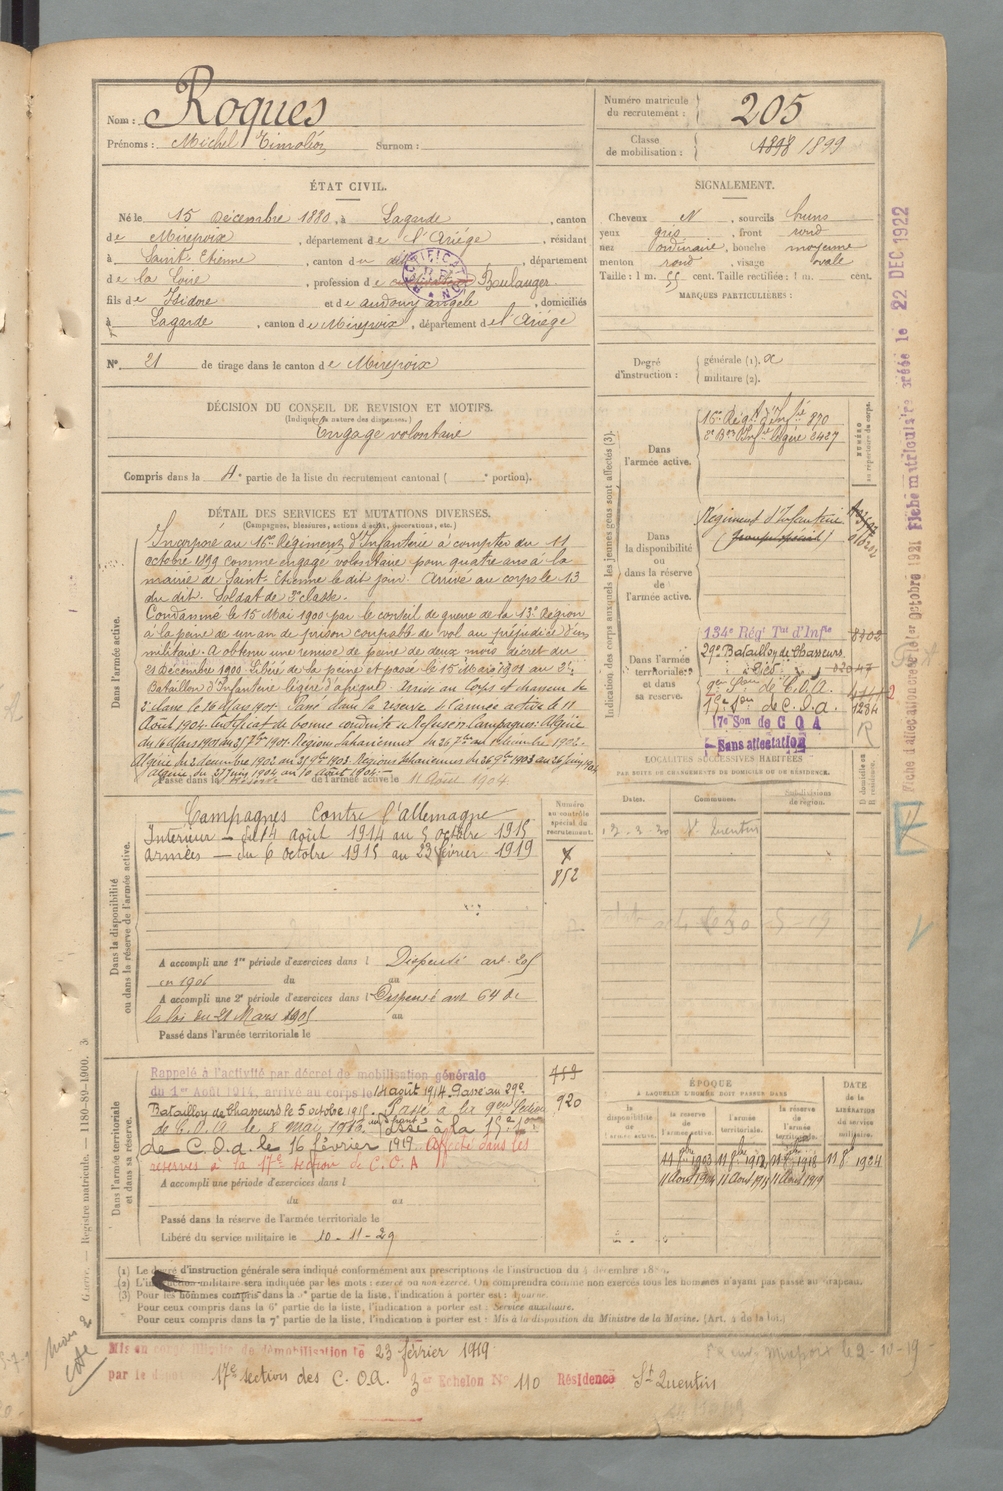 Nom : Roques
Prénoms : Michel Timoléon Surnom :
Numéro matricule du recrutement : 205
Classe de mobilisation : 1898 1899
ÉTAT CIVIL.
Né le 15 Décembre 1880, à Lagarde, canton
de Mirepoix, département de l'Ariége, résidant
à Saint-Etienne, canton du dit, département
de la Loire, profession de Boulanger
fils de Isidore et de audouy angèle, domiciliés
à Lagarde, canton de Mirepoix, département de l'Ariége
N° 21 de tirage dans le canton de Mirepoix
SIGNALEMENT.
Cheveux N, sourcils bruns
yeux gris, front rond
nez ordinaire, bouche moyenne
menton rond, visage ovale
Taille : 1 m. 55 cent. Taille rectifiée : 1 m. cent.
MARQUES PARTICULIÈRES :
Degré d'instruction : générale (1). a
militaire (2).
DÉCISION DU CONSEIL DE REVISION ET MOTIFS.
(Indiquer la nature des dispenses.)
Engagé volontaire
Compris dans la 4e partie de la liste du recrutement cantonal ( e portion).
DÉTAIL DES SERVICES ET MUTATIONS DIVERSES.
(Campagnes, blessures, actions d'éclat, décorations, etc.)
Dans l'armée active.
Incorporé au 16e Régiment d'Infanterie à compter du 11
octobre 1899 comme engagé volontaire pour quatre ans à la
mairie de Saint-Etienne le dit jour. Arrivé au corps le 13
du dit. Soldat de 2e classe.
Condamné le 15 Mai 1900 par le conseil de guerre de la 13e Région
à la peine de un an de prison coupable de vol au préjudice d'un
militaire. A obtenu une remise de peine de deux mois décret du
21 Décembre 1900. Libéré de la peine et passé le 15 Mars 1901 au 3e
Bataillon d'Infanterie légère d'afrique. Arrivé au corps et chasseur de
2e classe le 16 Mars 1901. Passé dans la réserve de l'armée active le 11
Août 1904. Certificat de bonne conduite « Refusé ». Campagnes: Algérie
du 16 Mars 1901 au 25 7bre 1901. Régions Sahariennes du 26 7bre au 1er décembre 1902.
Algérie du 2 décembre 1902 au 25 9bre 1903. Régions Sahariennes du 26 9bre 1903 au 26 juin 1904
Algérie du 27 juin 1904 au 10 Août 1904.
Passé dans la réserve de l'armée active le 11 Août 1904
Indication des corps auxquels les jeunes gens sont affectés (3).
NUMÉRO au répertoire du corps.
Dans l'armée active.
16e Régt d'Infrie 870
3e Bon d'Infie légère 8437
Dans la disponibilité ou dans la réserve de l'armée active.
Régiment d'Infanterie
(Groupe spécial)
Dans l'armée territoriale et dans sa réserve.
134e Régt Tal d'Infie 8302
29e Bataillon de Chasseurs
9e Son de C.O.A.
15e Son de C.O.a. 1234
17e Son de C O A
Sans affectation
R
LOCALITÉS SUCCESSIVES HABITÉES
PAR SUITE DE CHANGEMENTS DE DOMICILE OU DE RÉSIDENCE.
Dates. Communes. Subdivisions de région. D domicile ou R résidence.
12-3-20 St Quentin
Dans la disponibilité ou dans la réserve de l'armée active.
Numéro au contrôle spécial du recrutement.
Campagnes Contre l'allemagne
Intérieur — du 14 août 1914 au 5 octobre 1915
armées — du 6 octobre 1915 au 23 février 1919
852
A accompli une 1re période d'exercices dans l Dispensé art. 205
en 1906 du au
A accompli une 2e période d'exercices dans l Dispensé art 64 de
la loi du 21 Mars 1905 au
Passé dans l'armée territoriale le
Dans l'armée territoriale et dans sa réserve.
Rappelé à l'activité par décret de mobilisation générale
du 1er Août 1914, arrivé au corps le 14 août 1914. Passé au 29e
Bataillon de Chasseurs le 5 octobre 1915. Passé à la 9eme Section
de C.O.A le 8 mai 1918. Passé à la 15e Son
de C.O.a. le 16 février 1919. Affecté dans les
réserves à la 17e section de C.O.A
759
920
A accompli une période d'exercices dans l
du au
Passé dans la réserve de l'armée territoriale le
Libéré du service militaire le 10-11-29
ÉPOQUE
À LAQUELLE L'HOMME DOIT PASSER DANS
la disponibilité de l'armée active. la réserve de l'armée active. l'armée territoriale. la réserve de l'armée territoriale. DATE DE LA LIBÉRATION DU SERVICE militaire.
11 8bre 1903
11 Août 1904
(1) Le degré d'instruction générale sera indiqué conformément aux prescriptions de l'instruction du 4 décembre 1889.
(2) L'instruction militaire sera indiquée par les mots : exercé ou non exercé. On comprendra comme non exercés tous les hommes n'ayant pas passé au drapeau.
(3) Pour les hommes compris dans la 4e partie de la liste, l'indication à porter est :
Pour ceux compris dans la 6e partie de la liste, l'indication à porter est : Service auxiliaire.
Pour ceux compris dans la 7e partie de la liste, l'indication à porter est : Mis à la disposition du Ministre de la Marine. (Art. 4 de la loi.)
Mis en congé illimité de démobilisation le 23 février 1919
par le 17e section des C.O.A. 3e Echelon No 110 Résidence St Quentin
Guerre. — Registre matricule. — 1180-89-1900.
Fiche d'affectation créée le 1er Octobre 1921 Fiche matriculaire créée le 22 DEC 1922